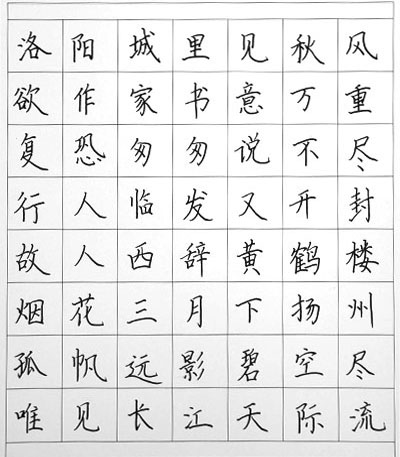 洛阳城里见秋风
欲作家书意万重
复恐匆匆说不尽
行人临发又开封
故人西辞黄鹤楼
烟花三月下扬州
孤帆远影碧空尽
唯见长江天际流